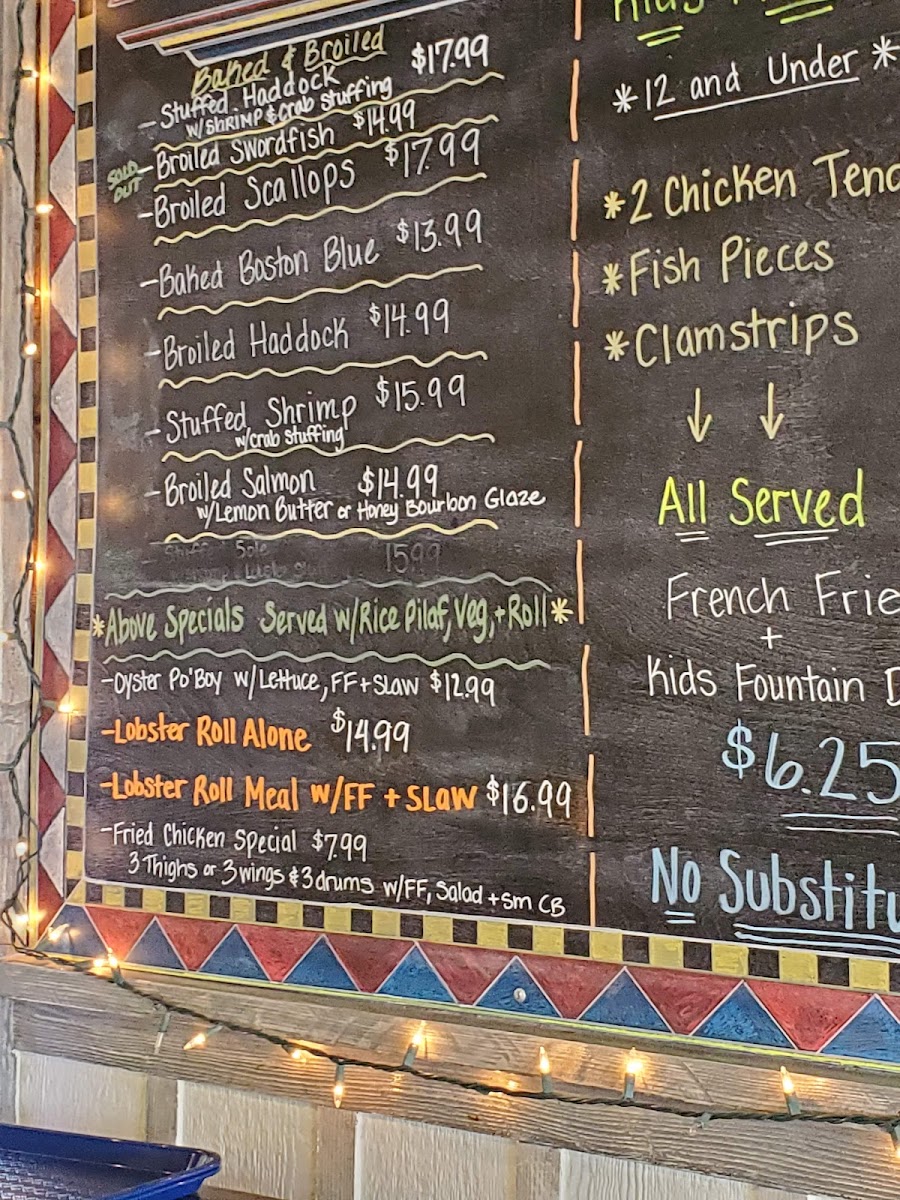 Baked & Broiled
- Stuffed Haddock $17.99
w/Shrimp & Crab Stuffing
SOLD OUT
- Broiled Swordfish $14.99
- Broiled Scallops $17.99
- Baked Boston Blue $13.99
- Broiled Haddock $14.99
- Stuffed Shrimp $15.99
w/crab stuffing
- Broiled Salmon $14.99
w/Lemon Butter or Honey Bourbon Glaze
Stuffed Sole 15.99
*Above Specials Served w/Rice Pilaf, Veg, + Roll*
- Oyster Po'Boy w/Lettuce, FF + Slaw $12.99
- Lobster Roll Alone $14.99
- Lobster Roll Meal w/FF + Slaw $16.99
- Fried Chicken Special $7.99
3 Thighs or 3 wings & 3 drums w/FF, Salad + sm CB
Kids
*12 and Under*
*2 Chicken Tend
*Fish Pieces
*Clamstrips
↓ ↓
All Served
French Frie
+
Kids Fountain D
$6.25
No Substitu